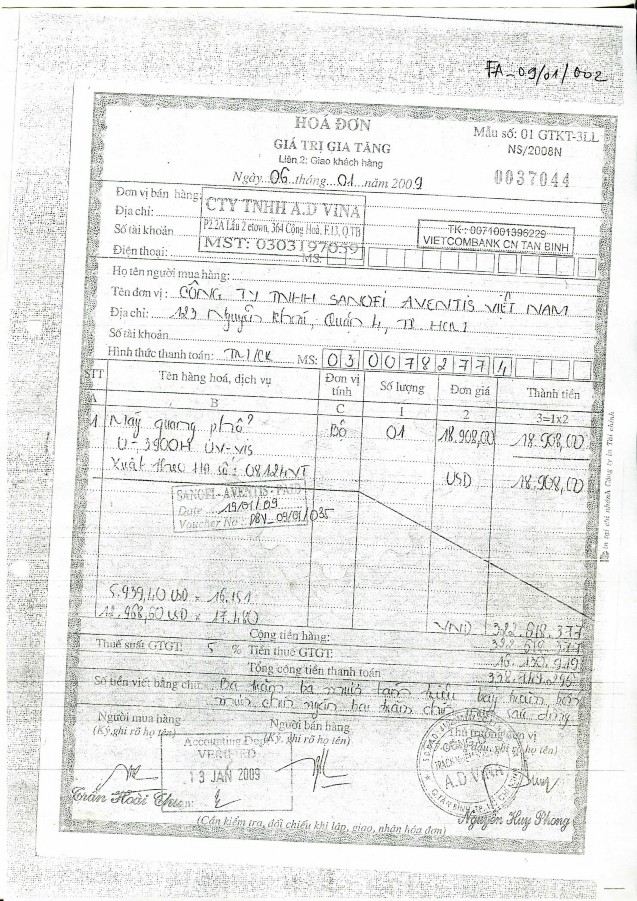 FA_09/01/002
HOÁ ĐƠN
GIÁ TRỊ GIA TĂNG
Liên 2: Giao khách hàng
Mẫu số: 01 GTKT-3LL
NS/2008N
Ngày...06...tháng...01...năm 2009
0037044
Đơn vị bán hàng:
CTY TNHH A.D VINA
Địa chỉ:
P2.2A Lầu 2 etown, 364 Cộng Hoà, F.13, Q.TB
Số tài khoản
TK: 0071001396229
VIETCOMBANK CN TAN BINH
Điện thoại:
MST: 0303197039
MS:
Họ tên người mua hàng:
Tên đơn vị: CÔNG TY TNHH SANOFI AVENTIS VIỆT NAM
Địa chỉ: 123 Nguyễn Khoái, Quận 4, TP. HCM
Số tài khoản
Hình thức thanh toán: TM/CK MS: 0300782774
STT Tên hàng hoá, dịch vụ Đơn vị tính Số lượng Đơn giá Thành tiền
A B C 1 2 3=1x2
1 Máy quang phổ Bộ 01 18.908,00 18.908,00
U-3900H UV-VIS
Xuất theo HĐ số: 08124VT USD 18.908,00
SANOFI-AVENTIS-PAID
Date 19/01/09
Voucher No: PBV_09/01/035
5.939,40 USD x 16.151
12.968,60 USD x 17.480
Cộng tiền hàng: VND 322.618.377
322.618.377
Thuế suất GTGT: 5 % Tiền thuế GTGT: 16.130.919
Tổng cộng tiền thanh toán 338.749.296
Số tiền viết bằng chữ: Ba trăm ba mươi tám triệu bảy trăm bốn
mươi chín ngàn hai trăm chín sáu đồng
Người mua hàng
(Ký, ghi rõ họ tên)
Người bán hàng
(Ký, ghi rõ họ tên)
Thủ trưởng đơn vị
Accounting Dept
VERIFIED
13 JAN 2009
A.D VINA
Trần Hoài Thu
Nguyễn Huy Phong
(Cần kiểm tra, đối chiếu khi lập, giao, nhận hóa đơn)